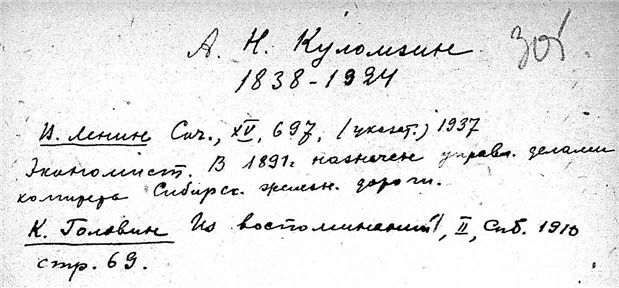 А. Н. Куломзин
1838-1924
В. Ленин Соч., XV, 697, (указат.) 1937
Экономист. В 1891 г. назначен управл. делами
комитета Сибирск. железн. дороги.
К. Головин Из воспоминаний, II, Спб. 1910
стр. 69.